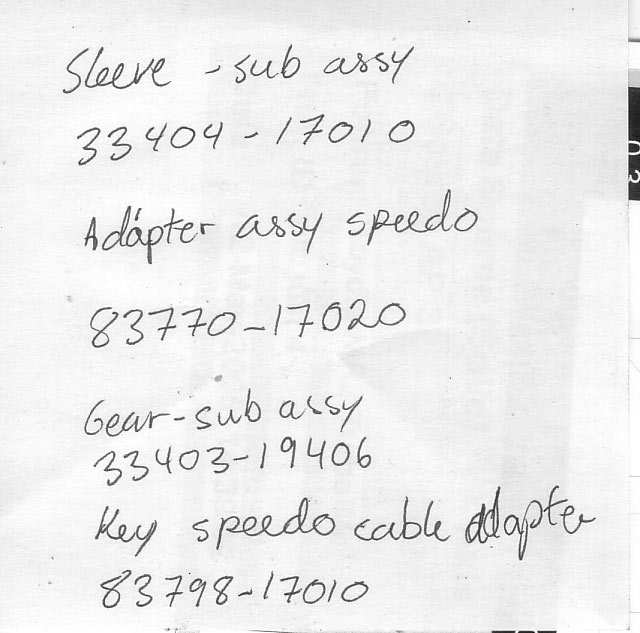 Sleeve - sub assy
33404-17010
Adapter assy speedo
83770-17020
Gear-sub assy
33403-19406
Key speedo cable adapter
83798-17010